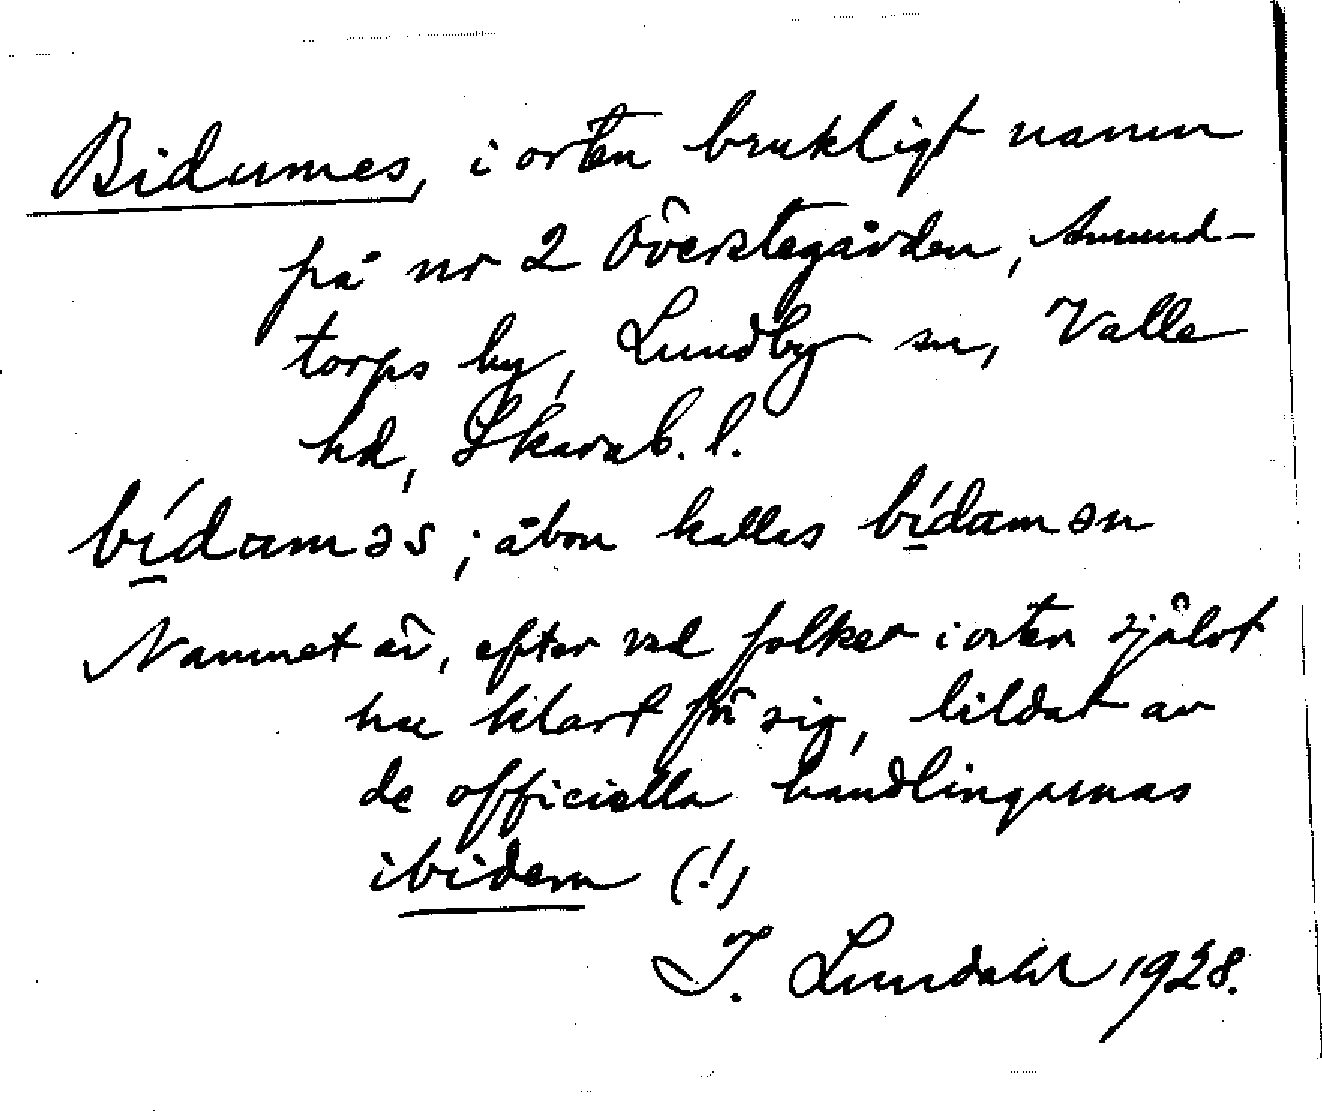 Bidumes, i orten brukligt namn
på nr 2 Överstegården, Amund-
torps by, Lundby sn, Valle
hd, Skarab. l.
bídaməs; åbon kallas bídamən
Namnet är, efter vad folket i orten självt
har klart för sig, bildat av
de officiella handlingarnas
ibidem (!)
I. Lundahl 1928.